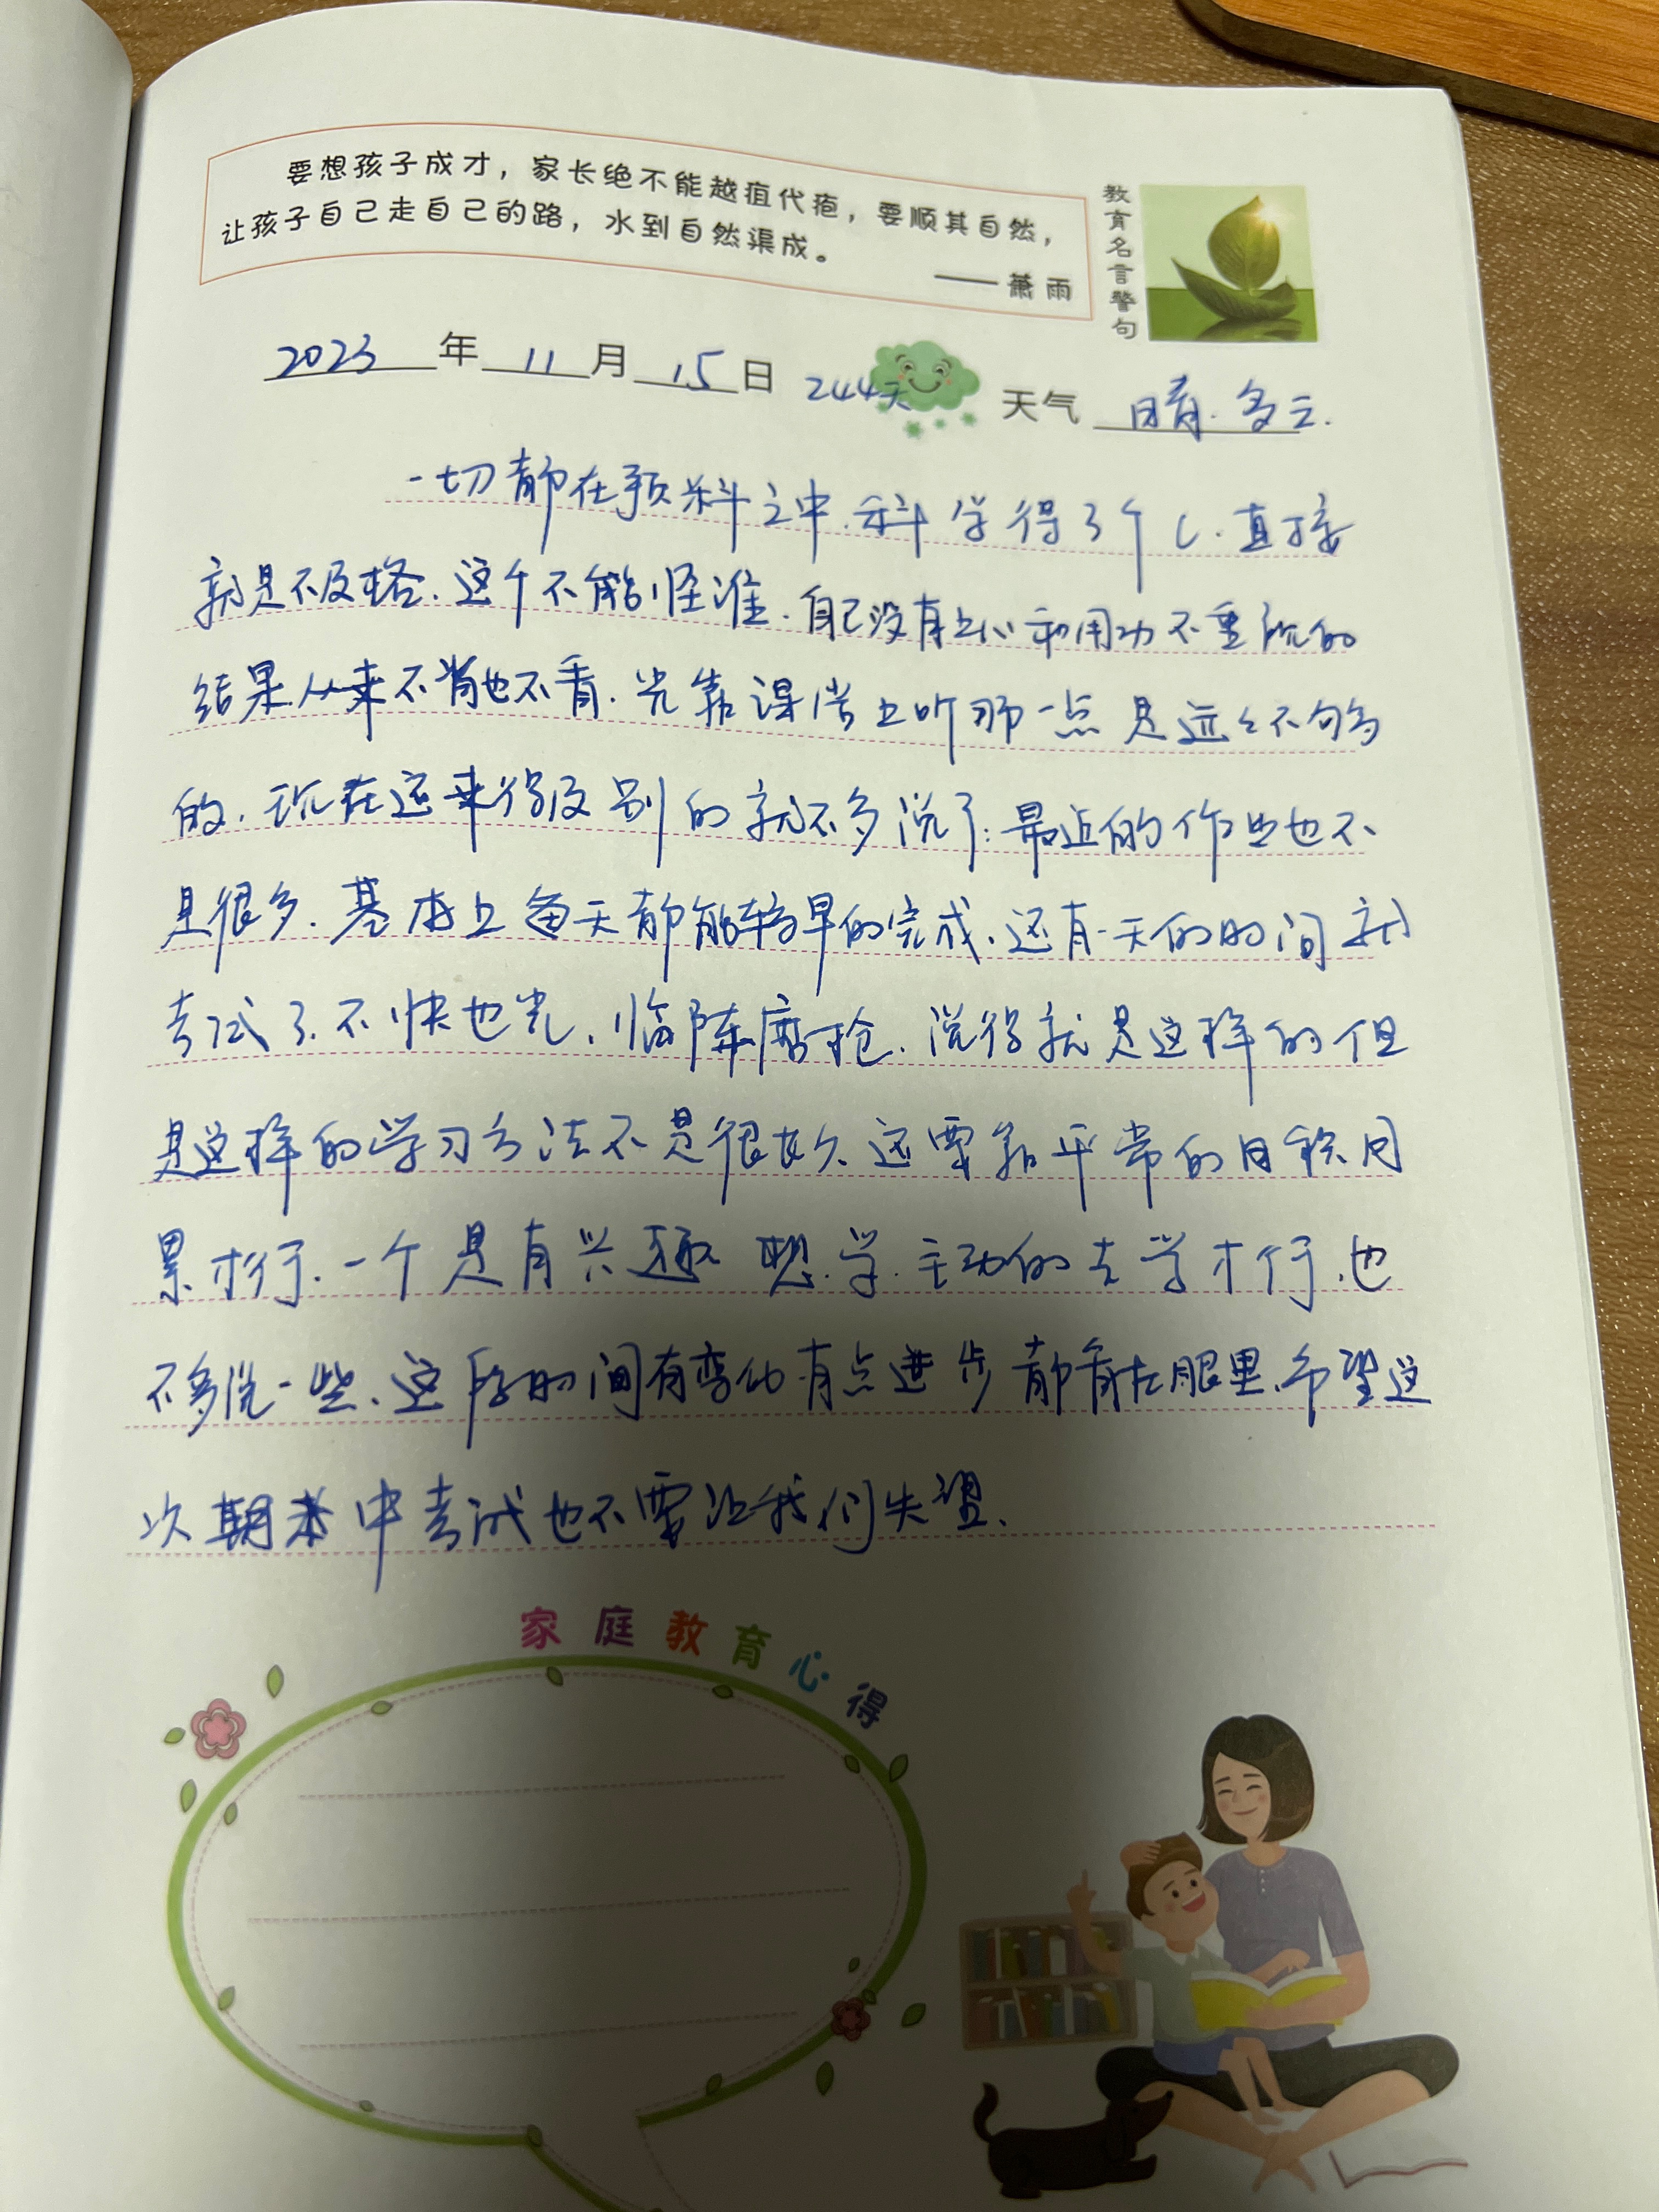 要想孩子成才，家长绝不能越疽代疱，要顺其自然，
让孩子自己走自己的路，水到自然渠成。
——萧雨
教育名言警句
2023年11月15日 244天 天气 晴.多云.
一切都在预料之中.科学得了个C.直接
就是不及格.这个不能怪谁.自己没有上心和用功不重视的
结果.从来不背也不看.光靠课堂上听那一点是远々不够
的.现在还来得及别的就不多说了.最近的作业也不
是很多.基本上每天都能较早的完成.还有一天的时间就
考试了.不快也光.临阵磨枪.说得就是这样的但
是这样的学习方法不是很长久.还要靠平常的日积月
累才行.一个是有兴趣想.学.主动的去学才行.也
不多说一些.这段时间有变化.有点进步都看在眼里.希望这
次期中考试也不要让我们失望.
家庭教育心得